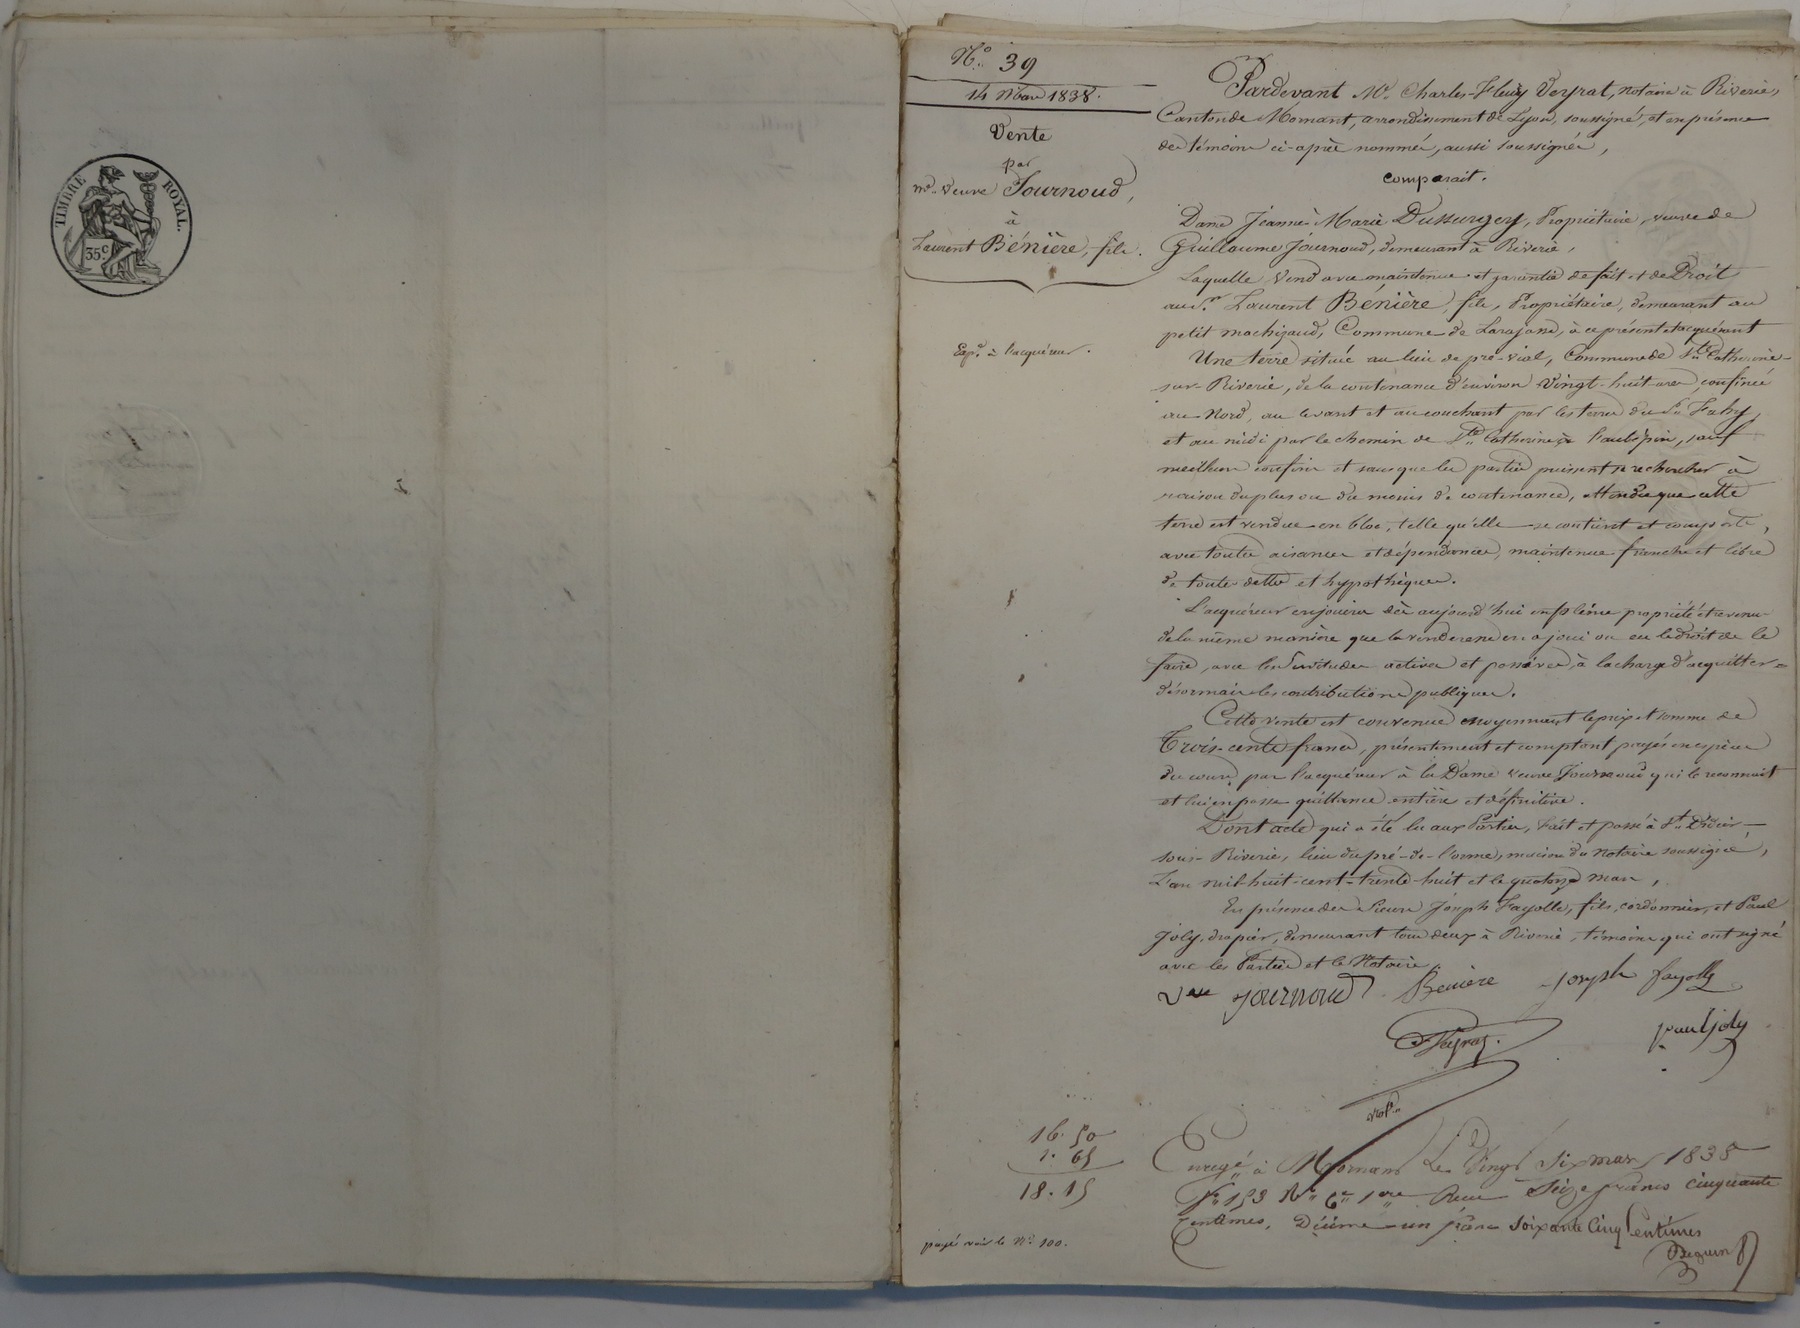 TIMBRE ROYAL.
35c
No. 39
14 Mars 1838.
Vente
par
me. veuve Journoud,
à
Laurent Bénière, fils.
Expd. à l'acquéreur.
Pardevant Me. Charles-Fleury Veyrat, notaire à Riverie,
Canton de Mornant, arrondissement de Lyon, soussigné, et en présence
des témoins ci-après nommés, aussi soussignés,
comparait.
Dame Jeanne-Marie Dussurgey, Propriétaire, veuve de
Guillaume Journoud, demeurant à Riverie,
Laquelle vend avec maintenue et garantie de fait et de Droit
au Sr. Laurent Bénière, fils, Propriétaire, demeurant au
petit machizaud, Commune de Larajasse, à ce présent et acquérant
Une terre située au lieu de pré-vial, Commune de Ste Catherine-
sur-Riverie, de la contenance d'environ vingt-huit ares, confinée
au Nord, au levant et au couchant par les terres du Sr.
et au midi par le chemin de Ste Catherine à l'aubépin, sauf
meilleurs confins et sans que les parties puissent se rechercher à
raison du plus ou du moins de contenance, attendu que cette
terre est vendue en bloc, telle qu'elle se contient et comporte,
avec toutes aisances et dépendances, maintenue franche et libre
de toutes dettes et hypothèques.
L'acquéreur en jouira dès aujourd'hui en pleine propriété et revenu
de la même manière que la venderesse en a joui ou eu le droit de le
faire, avec les Servitudes actives et passives, à la charge d'acquitter =
désormais les contributions publiques.
Cette vente est convenue moyennant le prix et somme de
Trois-cents francs, présentement et comptant payés en espèces
du cours par l'acquéreur à la Dame veuve Journoud qui le reconnait
et lui en passe quittance entière et définitive.
Dont acte qui a été lu aux Parties, Fait et passé à St. Didier-
sous-Riverie, lieu du pré-de-l'orme, maison du Notaire soussigné,
L'an mil-huit-cent-trente-huit et le quatorze mars,
En présence des Sieurs Joseph Fayolle, fils, cordonnier, et Paul
Joly, drapier, demeurant tous deux à Riverie, témoins qui ont signé
avec les Parties et le Notaire.
Vve Journoud Benière joseph fayolle
Veyrat. paul joly
16. 50
1. 65
18. 15
Enregé. à Mornant Le Vingt Six mars 1838
fo. 153 Ro. Ce. 1ere Reçu Seize francs cinquante
Centimes, Décime un franc soixante Cinq Centimes
payé voir le No. 100.
Beguin